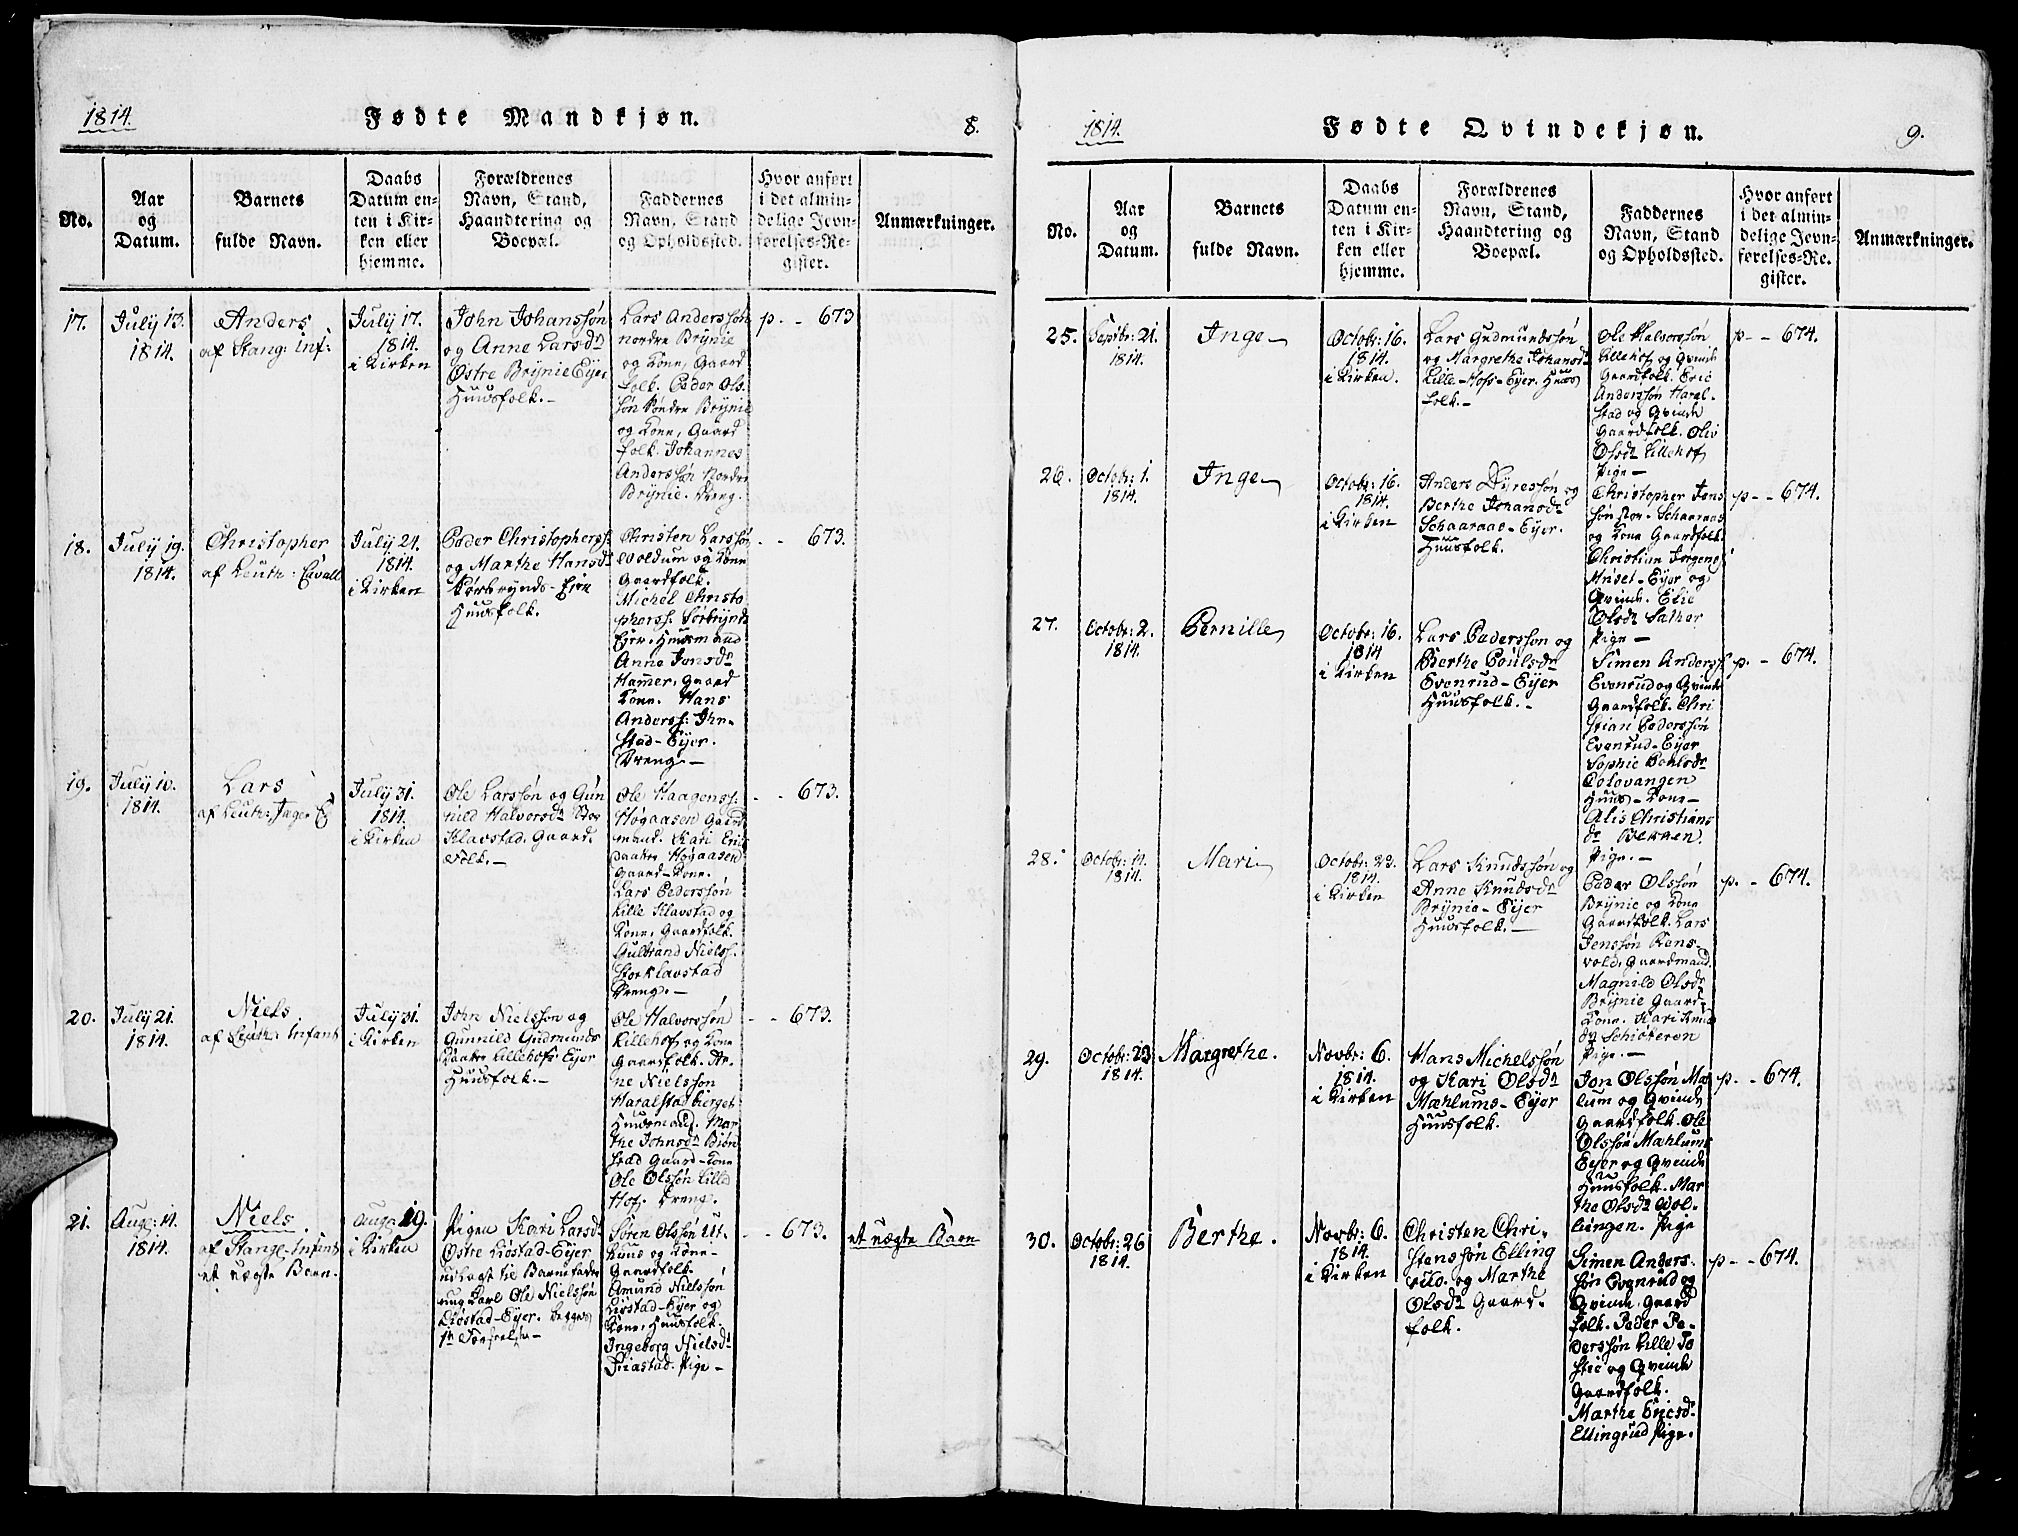 1814.
Fødte Mandkjøn.
8.
No.
Aar
og
Datum.
Barnets
fulde Navn.
Daabs
Datum en-
ten i Kir-
ken eller
hjemme.
Forældrenes
Navn, Stand,
Haandtering og
Boepæl.
Faddernes
Navn, Stand
og Opholdssted.
Hvor anført
i det almin-
delige Jevn-
førelses-Re-
gister.
Anmærkninger.
17.
July 13.
1814.
Anders
af Stang: Inf:
July 17.
1814.
i Kirken
John Johanssøn
og Anne Larsdr
Østre Brynie Eyer
Huusfolk.-
Lars Anderssøn
nordre Brynie
og Kone, Gaard
folk. Peder Ols-
søn Søndre Brynie
og Kone, Gaard
folk. Johannes
Anderssøn Nordre
Brynie. Dreng.
p. - 673
18.
July 19.
1814.
Christopher
af Leuth:
July 24.
1814.
i Kirken
Peder Christophers:
og Marthe Hansdr
Sørbrynds-Eyer
Huusfolk.
Christen Larssøn
Woldum og Kone
Gaardfolk.
Michel Christo
phers: Sørbrynds
Eyer. Huusmand
Anne Jonsdr
Hamer, Gaard
Kone. Hans
Anders: Ihn-
stad-Eyer.
Dreng.-
- - 673.
19.
July 10.
1814.
Lars
af Leuth: Jager
July 31.
1814.
i Kirken
Ole Larssøn og Gun
nild Halvorsdr Stor
Klavstad. Gaard-
folk.-
Ole Haagens:
Høgaasen Gaard
mand. Kari Erics
daatter Høgaasen
Gaard-Kone.
Lars Pederssøn
Lille Klavstad og
Kone, Gaardfolk.
Gulbrand Niels:
Stor Klavstad
Dreng.-
- - 673.
20.
July 21.
1814.
Niels
af Leuth: Infant
July 31.
i Kirken
John Nielssøn og
Gunnild Gudmunds
Daatter Lillehofs Eyer
Huusfolk.-
Ole Halvorssøn
Lillehof og Kone
Gaardfolk. Ar-
ne Nielssøn
Haralstadbierget
Huusmand. Mar
the Johnsdr Biøn
stad Gaard-Kone
Ole Olssøn Lille
Hof, Dreng.
- - 673.
21.
Aug: 14.
1814.
Niels
af Stange-Infant
et uægte Barn.
Aug: 19.
i Kirken
Pigen Kari Larsdr
Østre Liøstad-Eyer
udlagt til Barnefader
ung Karl Ole Nielssøn
Liøstad-Eyer. begges
1te Forseelse-
Søren Olssøn
og Kone-
Gaardfolk.
Amund Nielssøn
Liøstad-Eyer og
Kone, Huusfolk.
Ingeborg Nielsdr
Pige-
- - 673.
et uægte Barn
1814.
Fødte Qvindekjøn.
9.
No.
Aar
og
Datum.
Barnets
fulde Navn.
Daabs
Datum en-
ten i Kir-
ken eller
hjemme.
Forældrenes
Navn, Stand,
Haandtering og
Boepæl.
Faddernes
Navn, Stand
og Opholdssted.
Hvor anført
i det almin-
delige Jevn-
førelses-Re-
gister.
Anmærkninger.
25.
Septbr: 21.
1814.
Inge
Octobr: 16.
1814.
i Kirken.
Lars Gudmundssøn
og Margrethe Johansdr
Lille-Hofs-Eyer. Huus
folk.-
Ole Halvorssøn
Lillehof og Qvinde
Gaardfolk. Eric
Anderssøn Haral-
stad og Qvinde
Gaardfolk. Oliv
Olsdr Lillehof
Pige-
p- - 674.
26.
Octobr: 1.
1814.
Inge
Octobr: 16.
1814.
i Kirken
Anders Dyressøn og
Berthe Johansdr
Schaaraas-Eyer.
Huusfolk.
Christopher Jens
søn stor-Schaaraas
og Kone Gaardfolk.
Christian Jørgens:
Muset-Eyer og
Qvinde. Elie
Olsdr Sather
Pige-
p- - 674.
27.
Octobr: 2.
1814.
Pernille
Octobr: 16.
1814
i Kirken
Lars Pederssøn og
Berthe Poulsdr
Evenrud-Eyer
Huusfolk.-
Simen Anders:
Evenrud og Qvinde
Gaardfolk. Chri
stian Pederssøn
Evenrud-Eyer
Sophie Pohlsdr
Huus-Kone-
Alis Christians
dr Berken.
Pige.-
p. - 674.
28.
Octobr: 14.
1814.
Mari
Octobr: 23.
1814.
i Kirken
Lars Knudssøn og
Anne Knudsdr
Brynie-Eyer
Huusfolk.-
Peder Olssøn
Brynie og Kone
Gaardfolk. Lars
Jenssøn Rens-
vold, Gaardmand.
Magnild Olsdr
Brynie Gaard-
Kone. Kari Knuds
dr Schiøteren
Pige.-
p. - 674.
29.
Octobr: 23
1814.
Margrethe.
Novbr: 6.
1814.
i Kirken
Hans Michelssøn
og Kari Olsdr
Mæhlums-Eyer
Huusfolk.
Jon Olssøn Mæ
lum og Qvinde
Gaardfolk. Ole
Olssøn Mæhlums
Eyer og Qvinde
Huusfolk. Mar
the Olsdr Wol-
lungen. Pige
p- - 674.
30.
Octobr: 26
1814.
Berthe.
Novbr: 6.
1814.
i Kirken
Christen Chri-
stenssøn Elling
rud. og Marthe
Olsdr Gaard-
folk.
Simen Anders-
søn Evenrud og
Qvinde, Gaard
folk. Peder Pe-
derssøn Lille To
stie og Qvinde
Gaardfolk.
Marthe Ericsdr
Ellingrud Pige.
p- - 674.